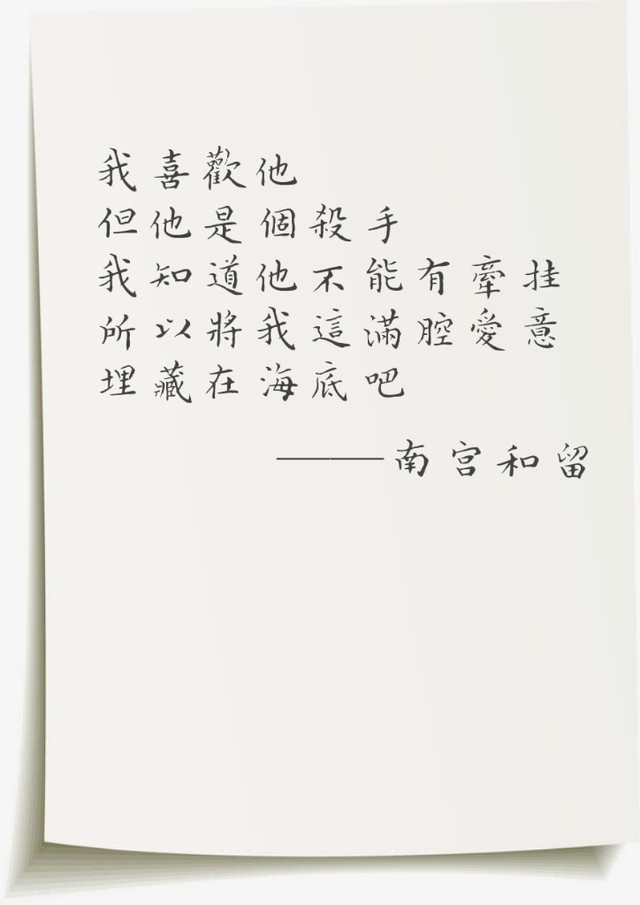 我喜歡他
但他是個殺手
我知道他不能有牽挂
所以將我這滿腔愛意
埋藏在海底吧
———南宫和留